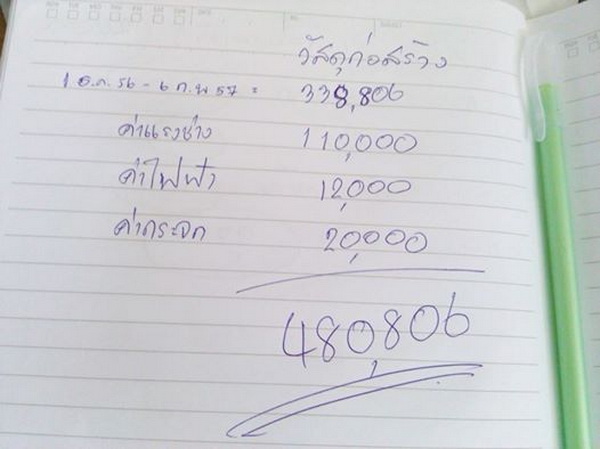 วัสดุก่อสร้าง
1 ธ.ค. 56 - 6 ก.พ 57 = 338,806
ค่าแรงช่าง 110,000
ค่าไฟฟ้า 12,000
ค่ากระจก 20,000
480,806